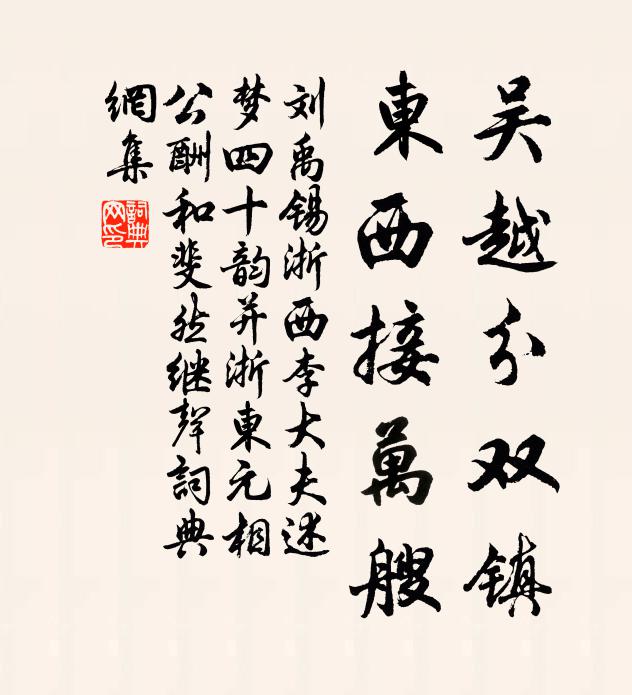 吴越分双镇
東西接萬艘
刘禹锡浙西李大夫述
梦四十韵并浙東元相
公酬和斐然继聲詞典
網集
詞典网印